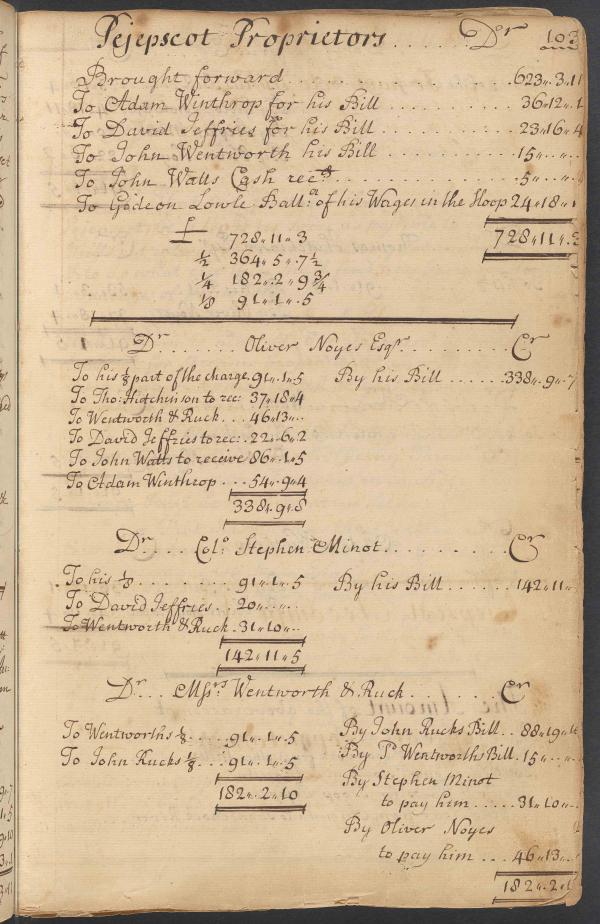 Pejepscot Proprietors . . . . . . . Dr 103
Brought forward . . . . . . . . . . . . 623 „ 3 „ 11
To Adam Winthrop for his Bill . . . . . . . . 36 „ 12 „ 1
To David Jeffries for his Bill . . . . . . . . 23 „ 16 „ 4
To John Wentworth his Bill . . . . . . . . 15 „ . . „ . .
To John Watts Cash reced . . . . . . . . 5 „ . . „ . .
To Gideon Lowle Ball.a of his Wages in the Sloop 24 „ 18 „
£ 728 „ 11 „ 3 728 „ 11 „ 3
½ 364 „ 5 „ 7½
¼ 182 „ 2 „ 9¾
⅛ 91 „ 1 „ 5
Dr . . . . . . . Oliver Noyes Esqr . . . . . . . . . Cr
To his ⅛ part of the charge 91 „ 1 „ 5 By his Bill . . . . . 338 „ 9 „ 7
To Tho: Hutchinson to rec: 37 „ 18 „ 4
To Wentworth & Ruck . . . 46 „ 13 „ . .
To David Jeffries to rec: . 22 „ 6 „ 2
To John Watts to receive 86 „ 1 „ 5
To Adam Winthrop . . . 54 „ 9 „ 4
338 „ 9 „ 8
Dr . . . . Colo Stephen Minot . . . . . . . . . Cr
To his ⅛ . . . . . . . . 91 „ 1 „ 5 By his Bill . . . . . . 142 „ 11 „
To David Jeffries . . 20 „ . . „ . .
To Wentworth & Ruck . 31 „ 10 „ . .
142 „ 11 „ 5
Dr . . . Messrs Wentworth & Ruck . . . . . . . Cr
To Wentworths ⅛ . . . . 91 „ 1 „ 5 By John Rucks Bill . . 88 „ 19 „
To John Rucks ⅛ . . . 91 „ 1 „ 5 By Do Wentworths Bill . 15 „ . . „
182 „ 2 „ 10 By Stephen Minot
to pay him . . . . . 31 „ 10 „ . .
By Oliver Noyes
to pay him . . . 46 „ 13 „
182 „ 2 „